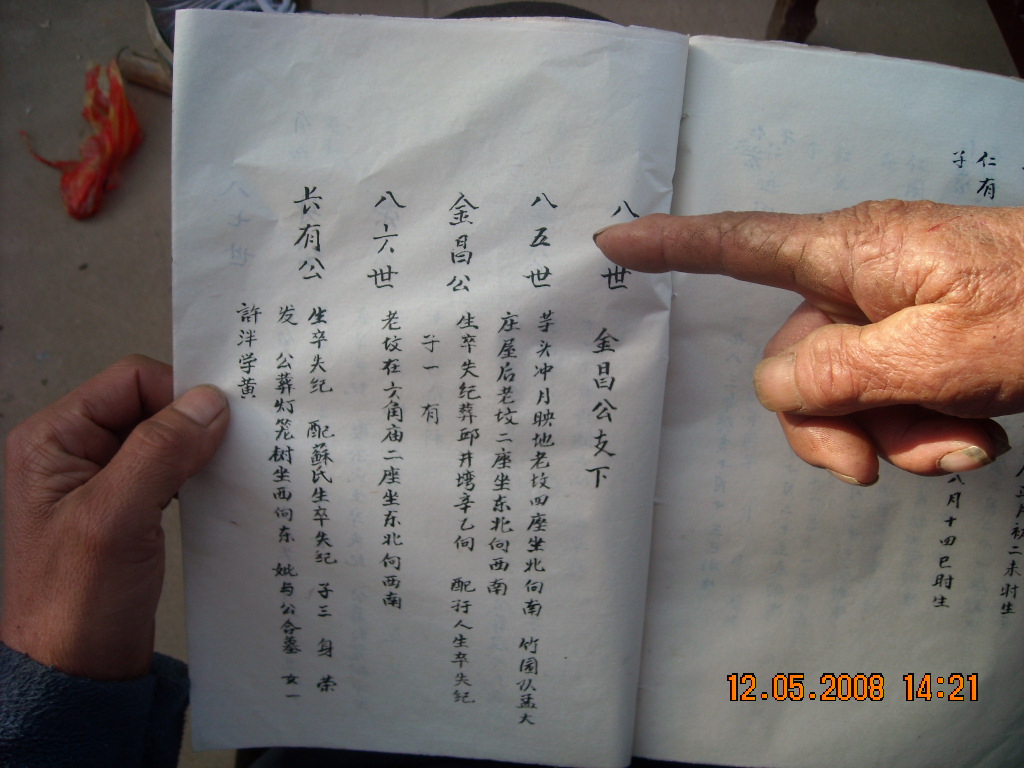 仁有
子
八月十四巳时生
初二未时生
八 世 金昌公支下
八五世 芋头冲月映地老坟四座坐北向南 竹园队孟大
庄屋后老坟二座坐东北向西南
金昌公 生卒失纪葬邱井塆辛乙向 配孺人生卒失纪
子一 有
八六世 老坟在六角庙二座坐东北向西南
长有公 生卒失纪 配蘇氏生卒失纪 子三 身 荣
发 公葬灯笼树坐西向东 妣与公合墓 女一
許泮学黄
八七世
12.05.2008 14:21